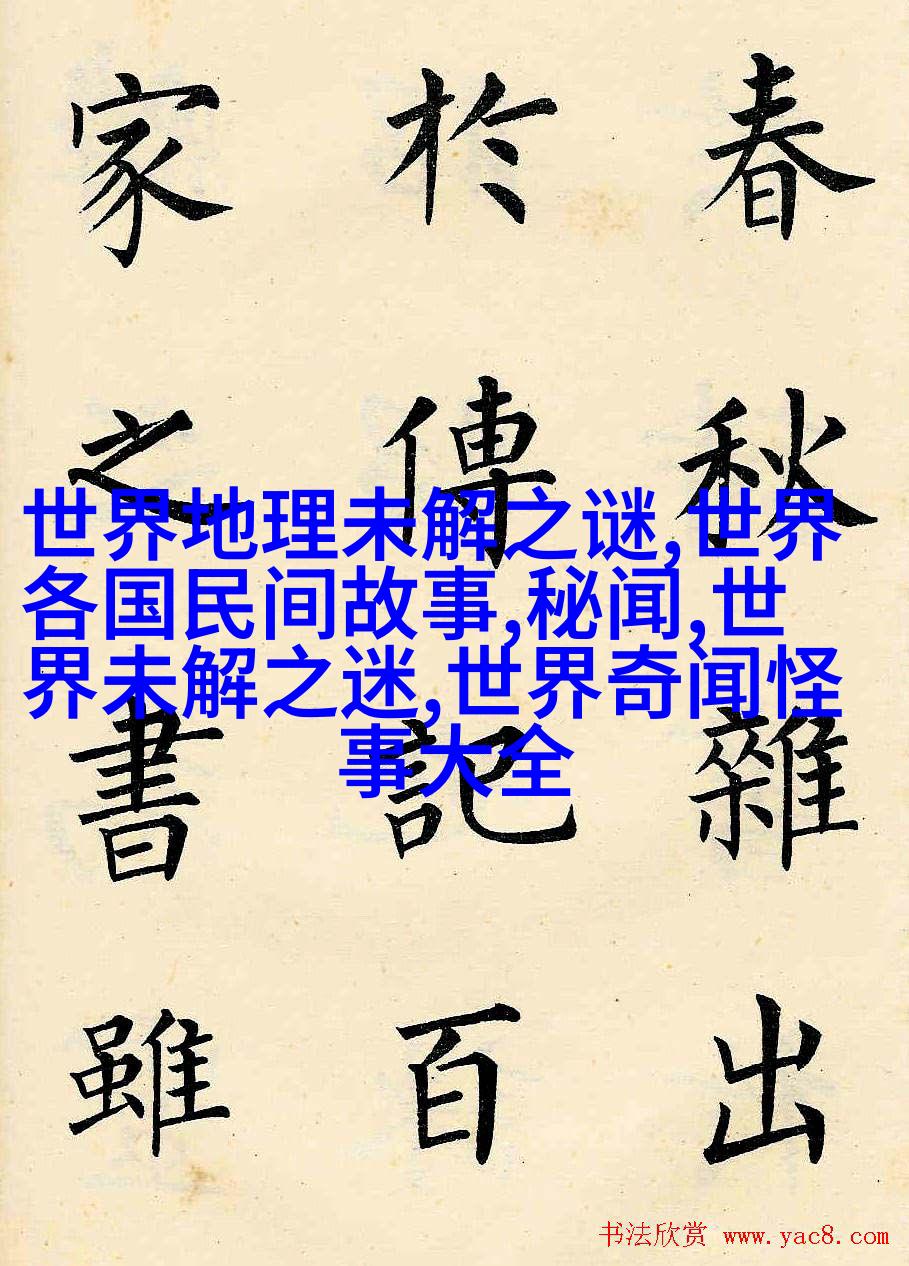 春秋雜出
於傳記百
家之書雖
世界地理未解之谜,世界
各国民间故事,秘闻,世
界未解之迷,世界奇闻怪
事大全
书法欣赏 www.yac8.com